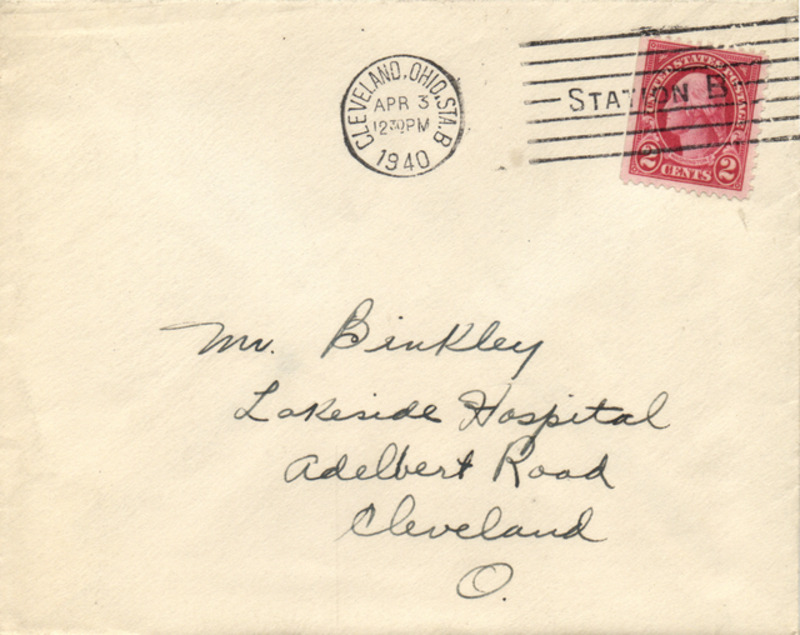 CLEVELAND, OHIO, STA. B
APR 3
12 30 PM
1940
STATION B
UNITED STATES POSTAGE
2 CENTS 2
Mr. Binkley
Lakeside Hospital
Adelbert Road
Cleveland
O.